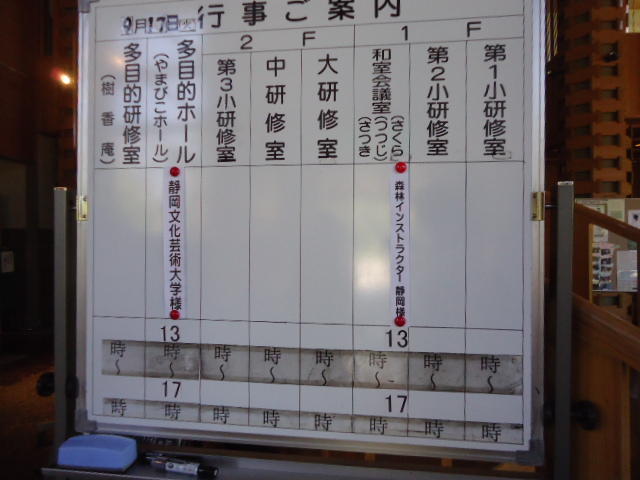 行事ご案内
9月17日(火)
1F
2F
第1小研修室
第2小研修室
和室会議室(さくら)(つつじ)(さつき)
大研修室
中研修室
第3小研修室
多目的ホール(やまびこホール)
多目的研修室(樹香庵)
森林インストラクター静岡様
静岡文化芸術大学様
13 13
時〜 時〜 時〜 時〜 時〜 時〜 時〜 時〜
17 17
時 時 時 時 時 時 時 時